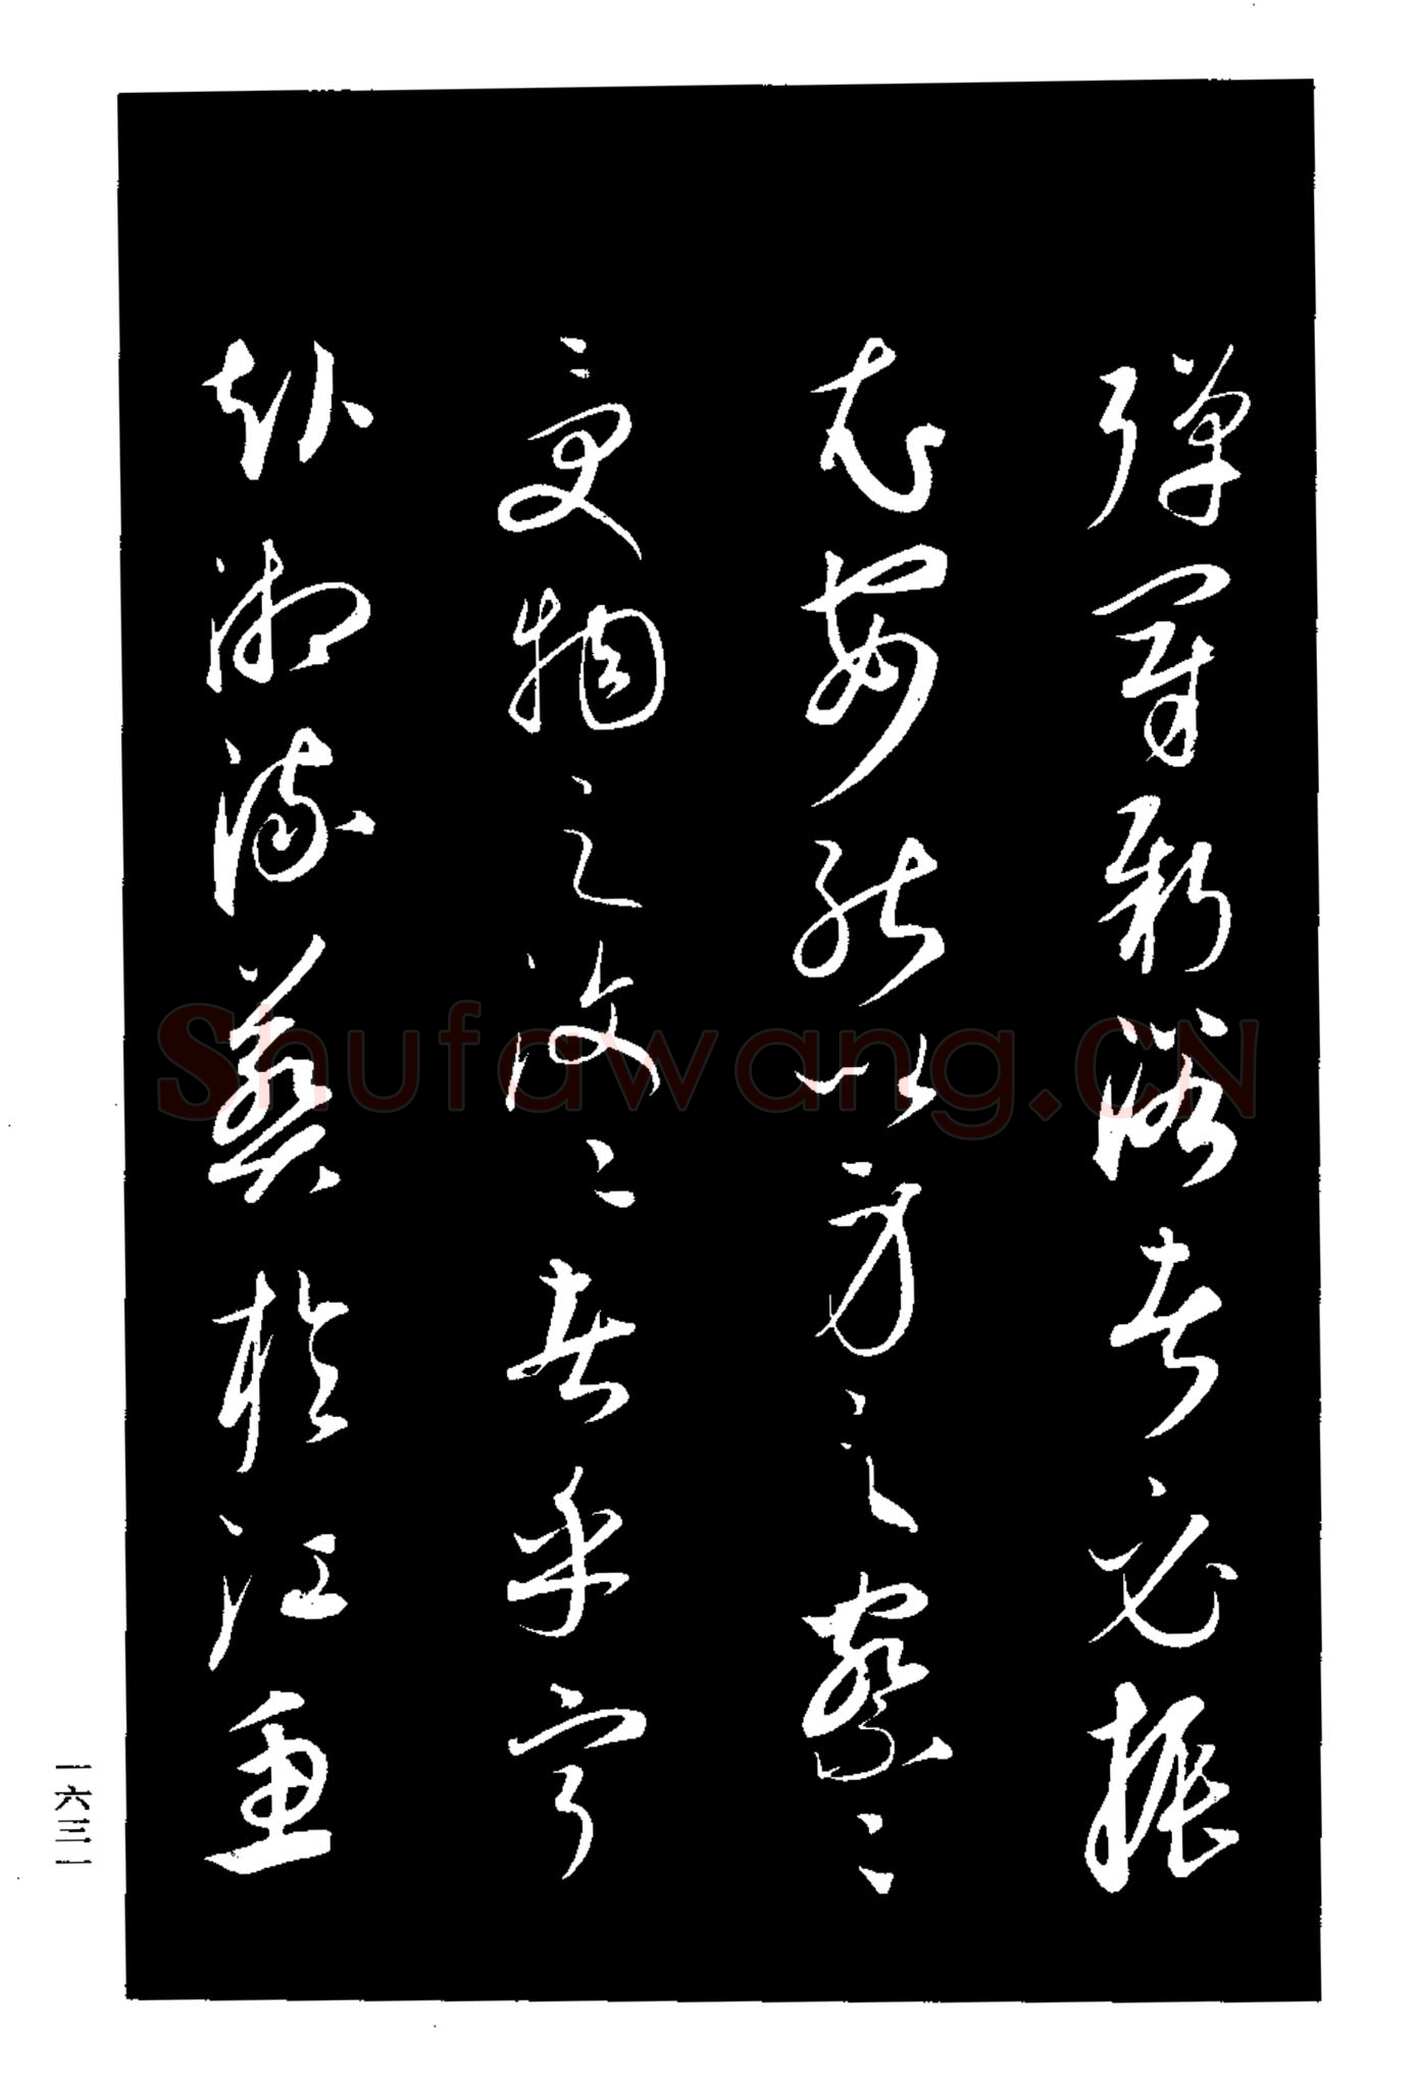 彈冠新浴者必振
衣安能以身之察〻
受物之汶〻者乎寧
赴湘流葬於江魚
一六三
Shufawang.CN